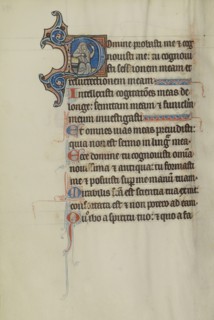 Domine probasti me & cog
nouisti me: tu cognoui
sti sessionem meam et
resurrectionem meam.
Intellexisti cogitationes meas de
longe: semitam meam & funiculu
meum inuestigasti
Et omnes uias meas preuidisti:
quia non est sermo in lingua mea.
Ecce domine tu cognouisti omnia
nouissima & antiqua: tu formasti
me & posuisti super me manum tuam.
Mirabilis facta est scientia tua ex me:
confortata est & non potero ad eam.
Quo ibo a spiritu tuo: & quo a fa